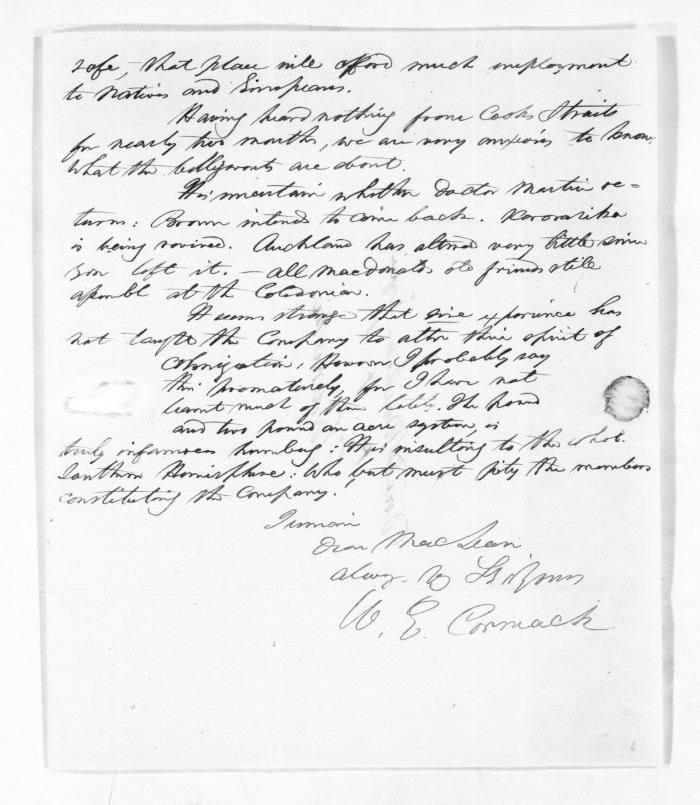 safe, that place will afford much employment
to Natives and Europeans.
Having heard nothing from Cooks Straits
for nearly two months, we are very anxious to know
what the bellygants are about.
It is uncertain whether Doctor Martin re-
turns: Brown intends to come back. Kororarika
is being revived. Auckland has altered very little since
you left it. — all Macdonalds old friends still
assemble at the Caledonian.
It seems strange that experience has
not taught the Company to alter their spirit of
Colonization, However I probably say
this prematurely, for I have not
learnt much of them lately. The pound
and two pound an acre system, is
truly infamous humbug: It is insulting to the whole
Southern Hemisphere: Who but must pity the members
constituting the Company!
I remain
Dear MacLean
always yours
W. E. Cormack